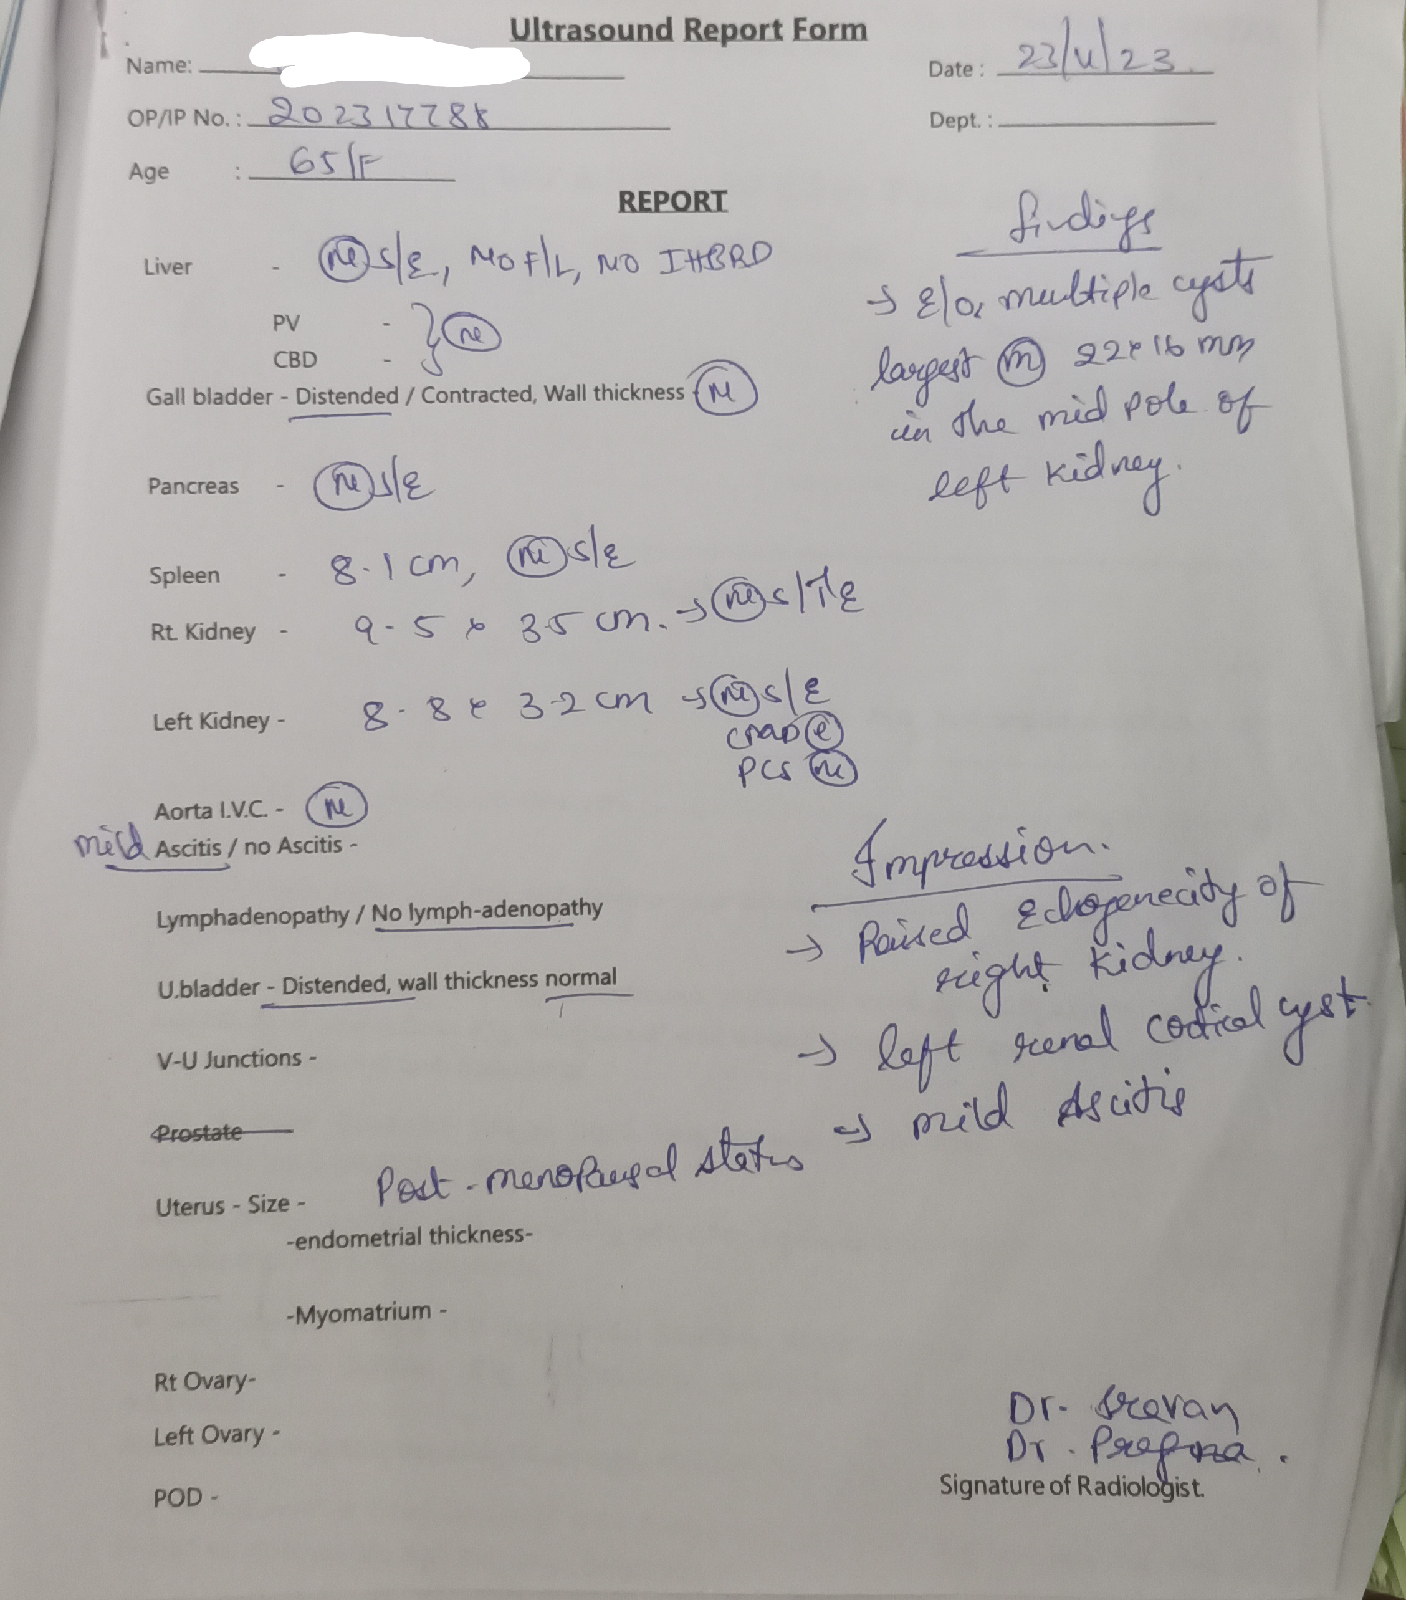 Ultrasound Report Form
Name:
Date : 23/4/23
OP/IP No. : 202317788
Dept. :
Age : 65/F
REPORT
Liver - (N) S/E, NO F/L, NO IHBRD
PV -
CBD - } (N)
Gall bladder - Distended / Contracted, Wall thickness (N)
Pancreas - (N) S/E
Spleen - 8.1 cm, (N) S/E
Rt. Kidney - 9.5 x 3.5 cm. → (N) S/↑E
Left Kidney - 8.8 x 3.2 cm → (N) S/E
PCS (N)
Aorta I.V.C. - (N)
mild Ascitis / no Ascitis -
Lymphadenopathy / No lymph-adenopathy
U.bladder - Distended, wall thickness normal
V-U Junctions -
Prostate
Uterus - Size - Post-menopausal status
-endometrial thickness-
-Myomatrium -
Rt Ovary-
Left Ovary -
POD -
findings
→ E/o multiple cysts
largest (m) 22x16 mm
in the mid pole of
left kidney.
Impression.
→ Raised Echogenecity of
right kidney.
→ left renal cortical cyst
→ mild Ascitis
Dr. Sravan
Dr.
Signature of Radiologist.